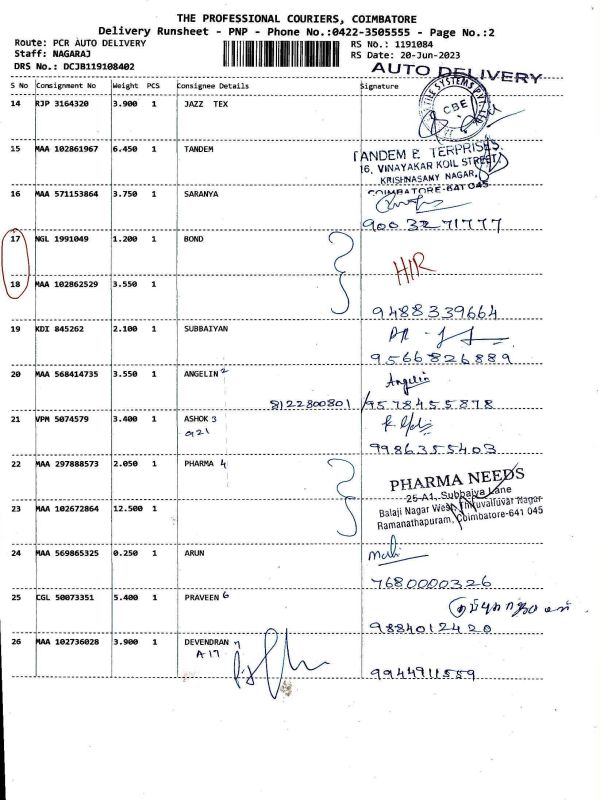 THE PROFESSIONAL COURIERS, COIMBATORE
Delivery Runsheet - PNP - Phone No.:0422-3505555 - Page No.:2
Route: PCR AUTO DELIVERY
RS No.: 1191084
Staff: NAGARAJ
RS Date: 20-Jun-2023
DRS No.: DCJB119108402
AUTO DELIVERY
S No Consignment No Weight PCS Consignee Details Signature
14 RJP 3164320 3.900 1 JAZZ TEX
CBE
15 MAA 102861967 6.450 1 TANDEM
TANDEM E TERPRISES
16, VINAYAKAR KOIL STREET
KRISHNASAMY NAGAR,
COIMBATORE-641 045
16 MAA 571153864 3.750 1 SARANYA
9003271777
17 NGL 1991049 1.200 1 BOND
H/R
18 MAA 102862529 3.550 1
9488339664
19 KDI 845262 2.100 1 SUBBAIYAN
9566826889
20 MAA 568414735 3.550 1 ANGELIN 2
Angelin
8122800801 / 9578455878
21 VPM 5074579 3.400 1 ASHOK 3
a21
9986355403
22 MAA 297888573 2.050 1 PHARMA 4
PHARMA NEEDS
25-A1, Subbaiya Lane
Balaji Nagar West, Thiruvalluvar Nagar
Ramanathapuram, Coimbatore-641 045
23 MAA 102672864 12.500 1
24 MAA 569865325 0.250 1 ARUN
7680000326
25 CGL 50073351 5.400 1 PRAVEEN 6
9884012420
26 MAA 102736028 3.900 1 DEVENDRAN 7
A17
9944911559